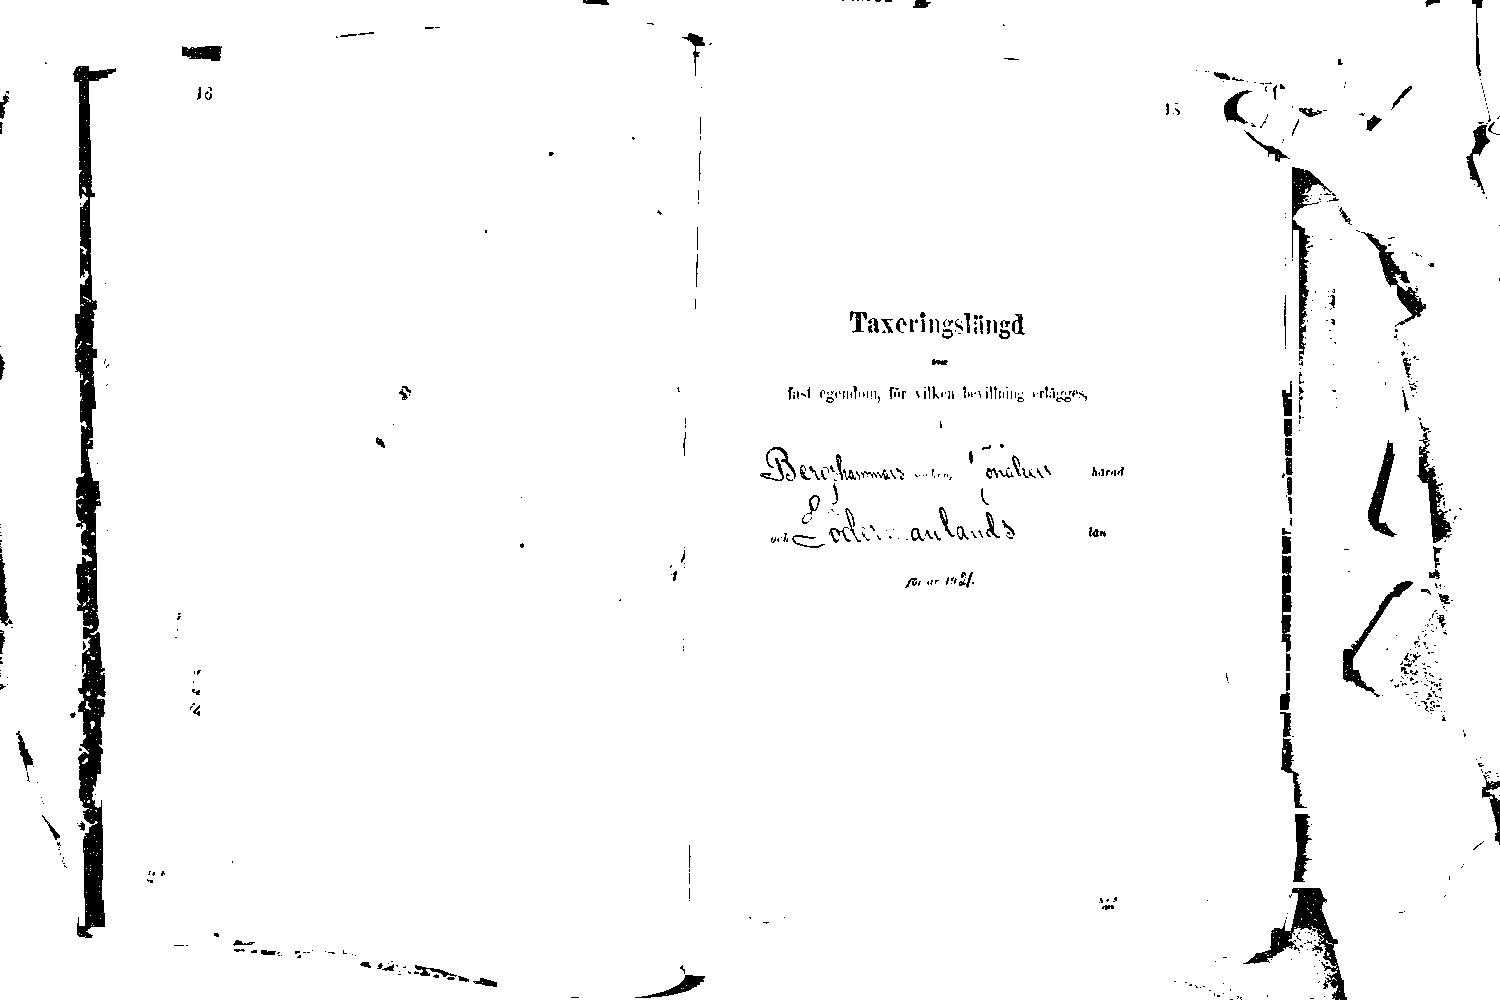 16
15
Taxeringslängd
över
fast egendom, för vilken bevillning erlägges,
i
Berghammars socken, Jönåkers härad
och Södermanlands län
för år 1921.